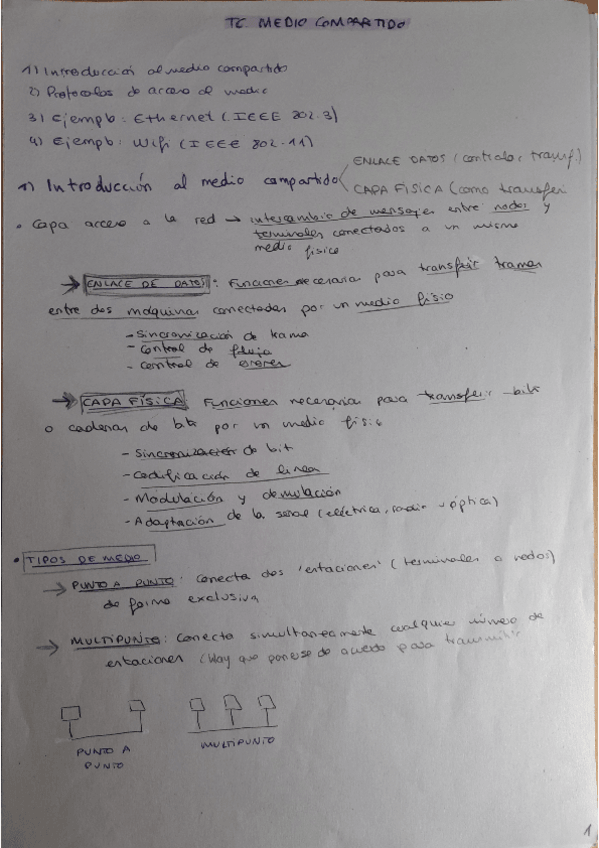 TC. MEDIO COMPARTIDO
1) Introducción al medio compartido
2) Protocolos de acceso al medio
3) Ejemplo: Ethernet (IEEE 802.3)
4) Ejemplo: Wifi (IEEE 802.11)
1) Introducción al medio compartido
ENLACE DATOS (controla transf.)
CAPA FÍSICA (como transferir
• Capa acceso a la red → intercambio de mensajes entre nodos y
terminales conectados a un mismo
medio físico
→ ENLACE DE DATOS: Funciones necesaria para transferir tramas
entre dos máquinas conectadas por un medio físio
- Sincronización de trama
- Control de flujo
- Control de errores
→ CAPA FÍSICA Funciones necesarias para transferir bits
o cadenas de bits por un medio físic
- Sincronización de bit
- Codificación de línea
- Modulación y demulación
- Adaptación de la señal (eléctrica, radio u óptica)
• TIPOS DE MEDIO
→ PUNTO A PUNTO: Conecta dos 'estaciones' (terminales o nodos)
de forma exclusiva
→ MULTIPUNTO: Conecta simultaneamente cualquier número de
estaciones (Hay que ponerse de acuerdo para transmitir
PUNTO A
PUNTO
MULTIPUNTO
1